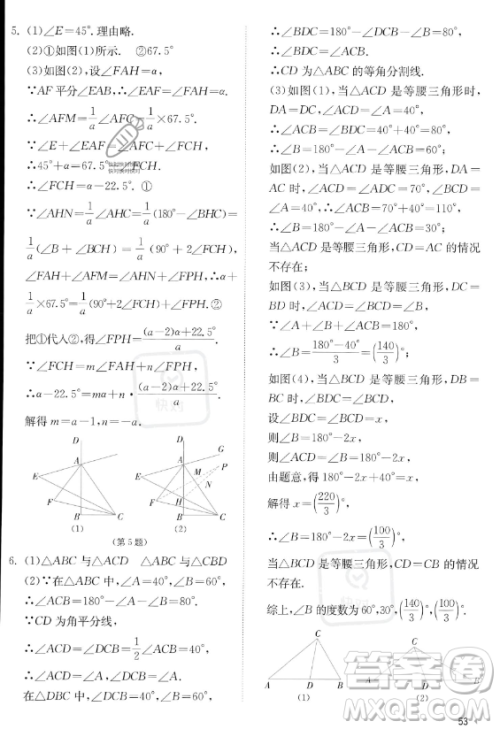 5. (1)∠E=45°.理由略.
(2)①如图(1)所示. ②67.5°
(3)如图(2),设∠FAH=α,
∵AF平分∠EAB,∴∠EAF=∠FAH=α.
∴∠AFM=1/a∠AFC=1/a×67.5°.
∵∠E+∠EAF=∠AFC+∠FCH,
∴45°+α=67.5°+∠FCH.
∴∠FCH=α-22.5°.①
∵∠AHN=1/a∠AHC=1/a(180°-∠BHC)
=1/a(∠B+∠BCH)=1/a(90°+2∠FCH),
∠FAH+∠AFM=∠AHN+∠FPH,∴α+
1/a×67.5°=1/a(90°+2∠FCH)+∠FPH.②
把①代入②,得∠FPH=((a-2)α+22.5°)/a.
∵∠FCH=m∠FAH+n∠FPH,
∴α-22.5°=mα+n·((a-2)α+22.5°)/a.
解得m=a-1,n=-a.
D
A
F
E
C
B
(1)
D
A
F
M
N
P
E
H
C
B
(2)
(第5题)
6. (1)△ABC与△ACD △ABC与△CBD
(2)∵在△ABC中,∠A=40°,∠B=60°,
∴∠ACB=80°.
∵CD为角平分线,
∴∠ACD=∠DCB=1/2∠ACB=40°.
∴∠ACD=∠A,∠DCB=∠A.
在△DBC中,∠DCB=40°,∠B=60°,
∴∠BDC=180°-∠DCB-∠B=80°.
∴∠BDC=∠ACB.
∴CD为△ABC的等角分割线.
(3)如图(1),当△ACD是等腰三角形时,
DA=DC,∠ACD=∠A=40°,
∴∠ACB=∠BDC=80°.
∴∠B=180°-40°-80°=60°.
如图(2),当△ACD是等腰三角形,DA=
AC时,∠ACD=∠ADC=70°,
∠BCD=∠A=40°,
∴∠B=180°-70°-40°-40°=30°.
当△ACD是等腰三角形,CD=AC的情况
不存在;
如图(3),当△BCD是等腰三角形,DC=
BD时,∠ACD=∠BCD=∠B,
∴∠B=(180°-40°)/3=(140/3)°.
如图(4),当△BCD是等腰三角形,DB=
BC时,∠BDC=∠BCD.
设∠BDC=∠BCD=x,
则∠B=180°-2x,
则∠ACD=∠B=180°-2x.
由题意,得180°-2x+40°=x,
解得x=(220/3)°.
∴∠B=180°-2x=(100/3)°.
当△BCD是等腰三角形,CD=CB的情况
不存在.
综上,∠B的度数为60°,30°,(140/3)°,(100/3)°.
C
A
D
B
(1)
C
A
D
B
53
答案卷
MXQE.COM
快对